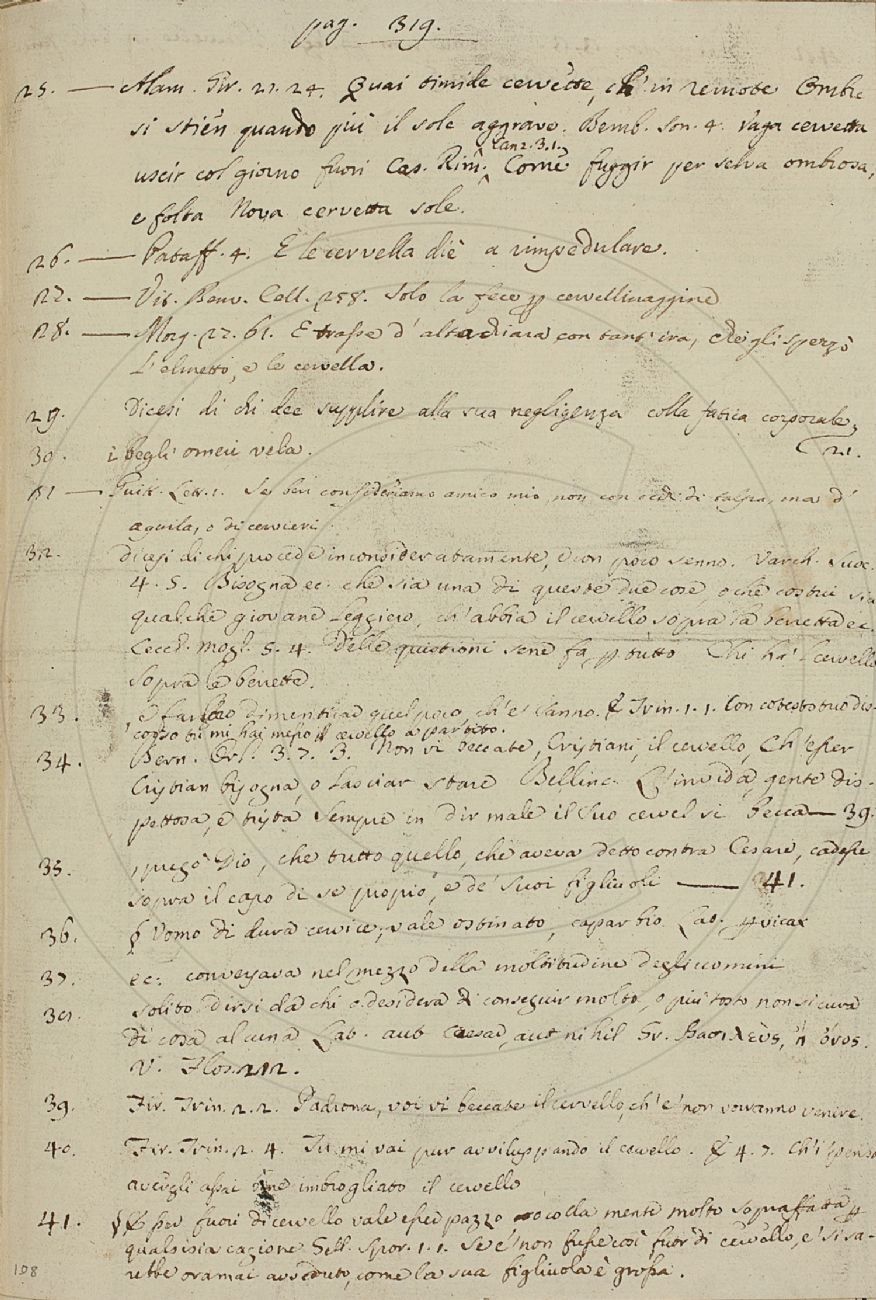 pag. 319.
25. — Alam. Gir. 21. 24. Quai timide cervette, ch' in remote Ombre
si stién quando più il sole aggrave. Bemb. Son. 4. Vaga cervetta
Canz. 3. 1.
uscir col giorno fuori Cas. Rim. Come fuggir per selva ombrosa,
e folta Nova cervetta sole.
26. — Pataff. 4. E le cervella diè a rimpedulare.
27. — Vit. Benv. Cell. 258. Solo la fece p cervellinaggine
28. — Morg. 27. 61. E trasse d' altachiara con tant' ira, che gli spezzò
L' elmetto, e le cervella.
29. Dicesi di chi dee supplire alla sua negligenza colla fatica corporale,
21.
30. i begli omeri vela.
31 — Guitt. Lett. 1. Se ben consideriamo amico mio, non con occhi di talpa, ma d'
aguila, o di cervieri
32. dicesi di chi procede inconsideratamente, e con poco senno. Varch. Suoc.
4. 5. Bisogna ec. che sia una di queste due cose, o che costui sia
qualche giovane leggiero, ch' abbia il cervello sopra la berretta ec.
Cecch. Mogl. 5. 4. Delle quistioni sene fa p tutto Chi ha 'l cervello
sopra le berrette.
33. , e fanloo dimenticar quel poco, ch' e' sanno. & Trin. 1. 1. Con cotesto tuo dis-
corso tu mi hai messo il cervello a partito.
34. Bern. Orl. 3. 7. 3. Non vi beccate, Cristiani, il cervello, Ch' esser
Cristian bisogna, o lasciar stare Bellinc. L' invida, gente dis-
pettosa, e trista Sempre in dir male il suo cervel si becca — 39.
35. , pregò Dio, che tutto quello, che aveva detto contra Cesare, cadesse
sopra il capo di se propio, e de' suoi figliuoli — 41.
36. § Uomo di dura cervice, vale ostinato, caparbio Lat. pvicax
37. ec: conversava nel mezzo della moltitudine degli uomini
38. solito dirsi da chi o desidera di conseguir molto, o più tosto non si cura
di cosa alcuna Lat. aut Caesar, aut nihil Gr. βασιλεὺς, ἢ ὄνος.
V. Flos. 212.
39. Fir. Trin. 2. 2. Padrona, voi vi beccate il cervello, ch' e' non vorranno venire.
40. Fir. Trin. 2. 4. Tu mi vai pur avviluppando il cervello. & 4. 7. Ch' i' penso
avergli assai bene imbrogliato il cervello
41. § & per fuori di cervello vale esser pazzo o colla mente molto sopraffatta p
qualsisia cagione. Gell. Spor. 1. 1. Se e' non fusse così fuor di cervello, e' si sa-
rebbe oramai avveduto, come la sua figliuola è grossa.
108